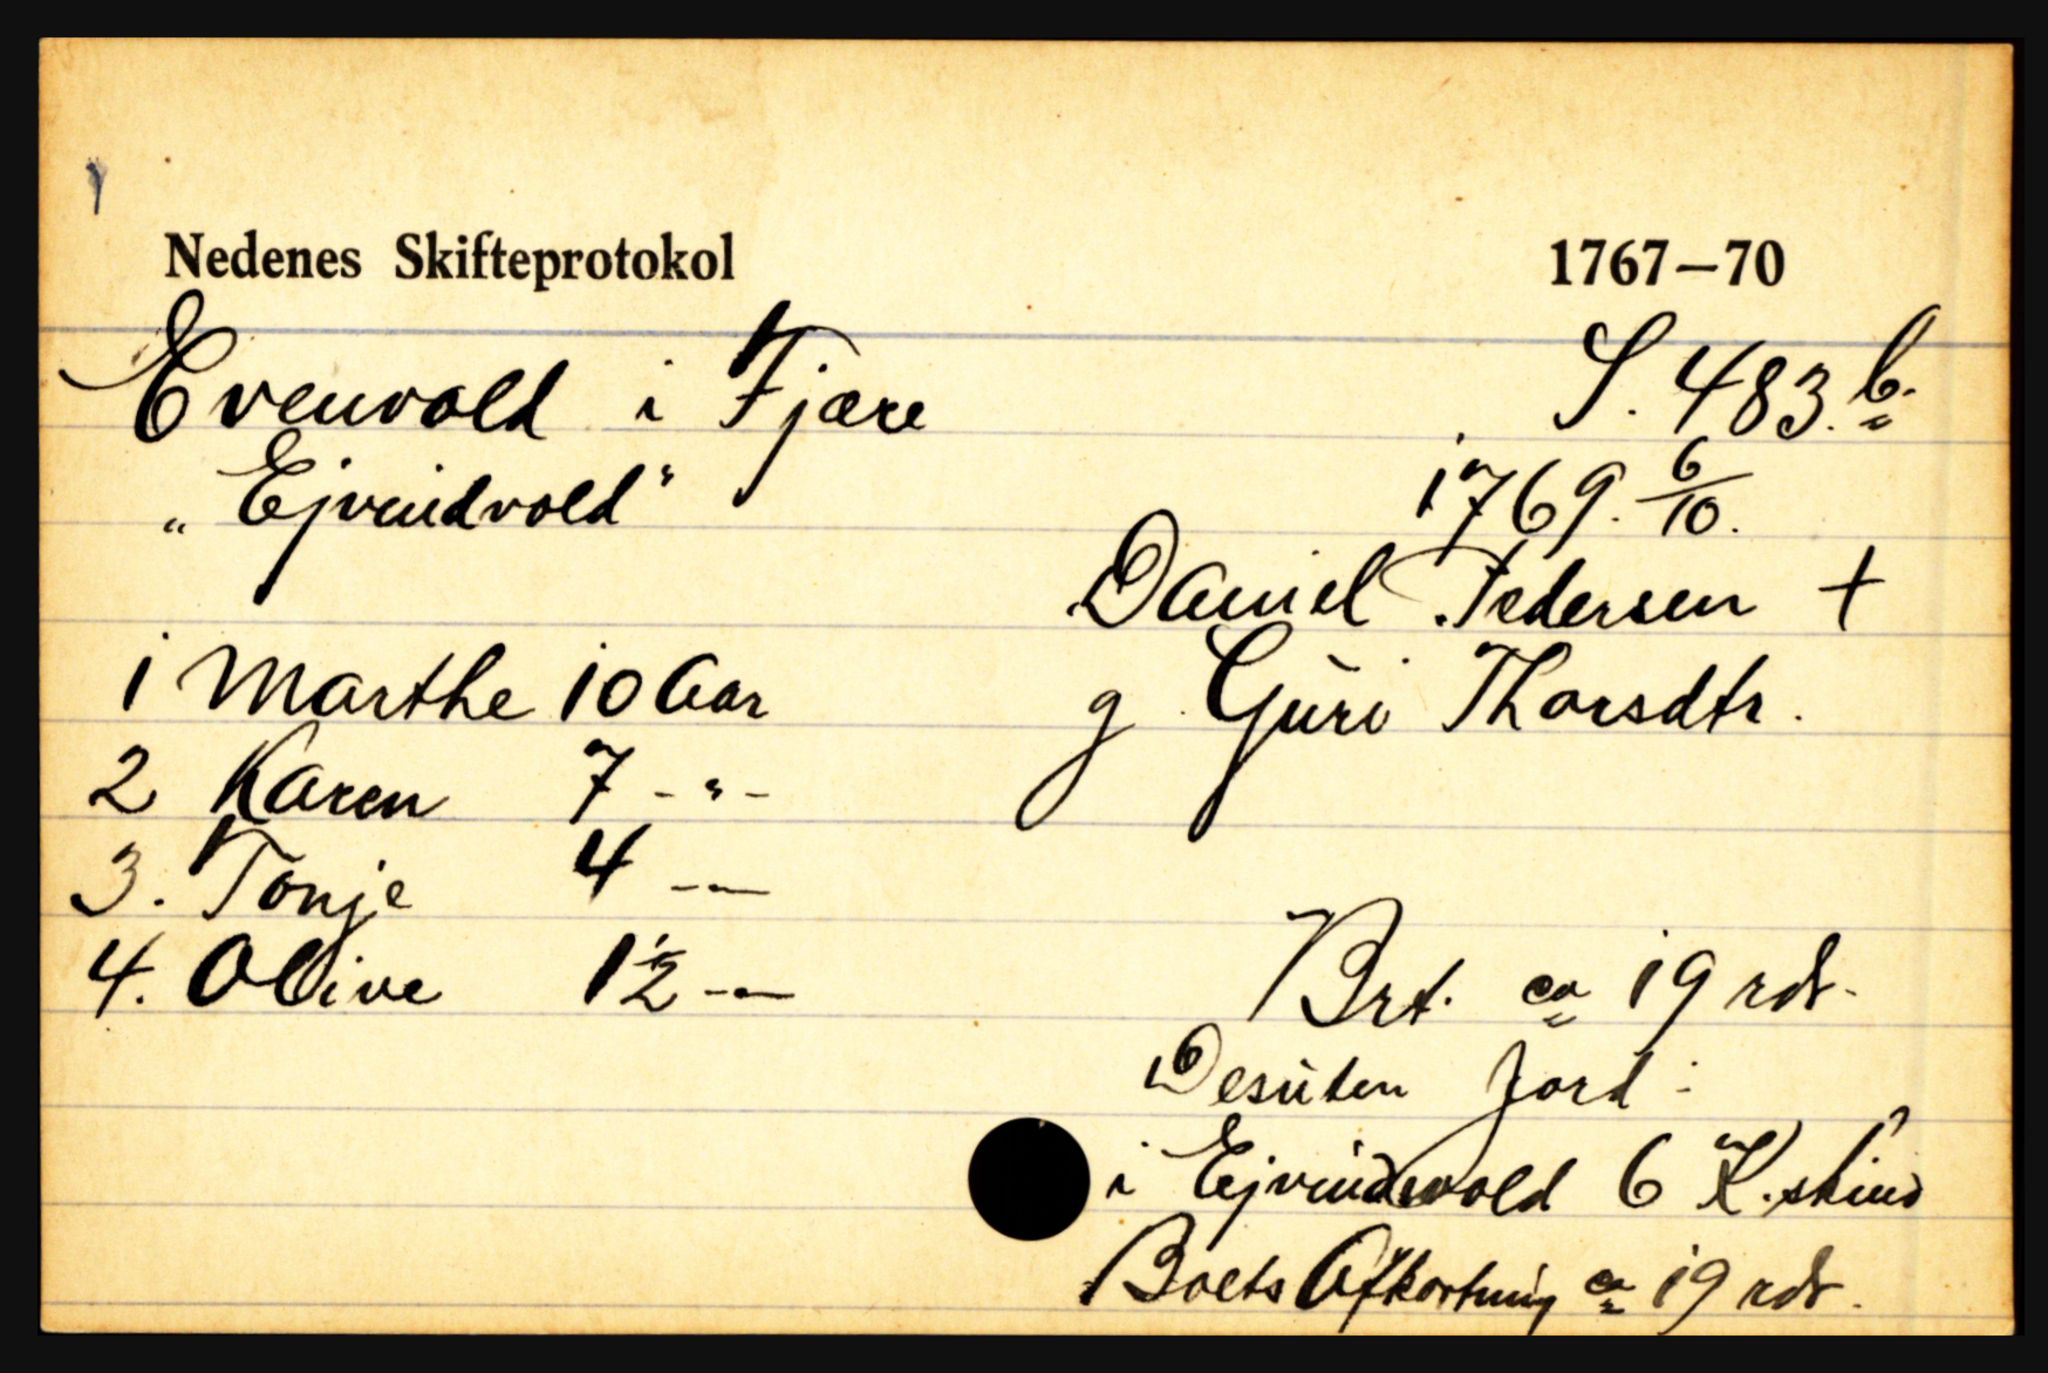 Nedenes Skifteprotokol 1767-70
Evenvold i Fjære S. 483.b.
"Ejvindvold" 1769. 6/10.
Daniel Pedersen +
1 Marthe 10 Aar g Guri Thorsdtr.
2 Karen 7 -"-
3. Tonje 4 -"-
4. Olive 1½ -"- Brt. ca 19 rdr.
Desuten Jord:
i Ejvindvold 6 K.skind
Boets Afkortning ca 19 rdr.